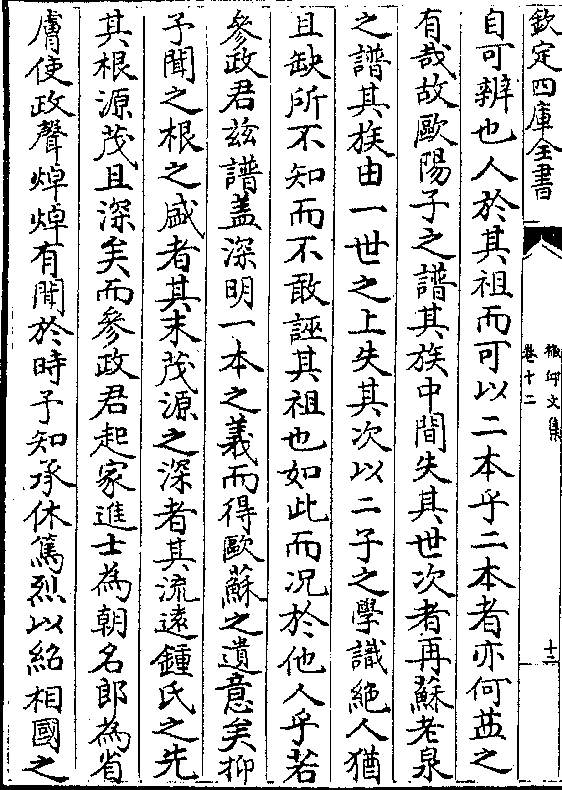 欽定四庫全書
抑菴文集
卷十二
十三
自可辨也人於其祖而可以二本乎二本者亦何益之
有哉故歐陽子之譜其族中間失其世次者再蘇老泉
之譜其族由一世之上失其次以二子之學識絶人猶
且缺所不知而不敢誣其祖也如此而况於他人乎若
參政君兹譜盖深明一本之義而得歐蘇之遺意矣抑
予聞之根之盛者其末茂源之深者其流遠鍾氏之先
其根源茂且深矣而參政君起家進士為朝名郎為省
膚使政聲焯焯有聞於時予知承休篤烈以紹相國之